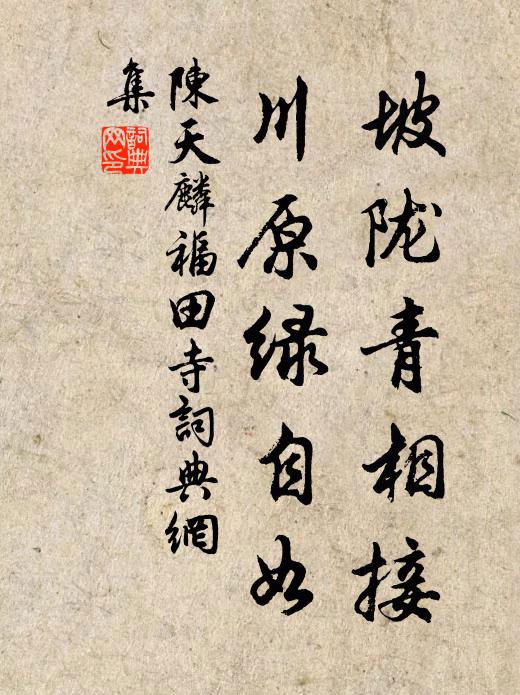 坡陇青相接
川原绿自如
陳天麟福田寺詞典網
集
詞典网印